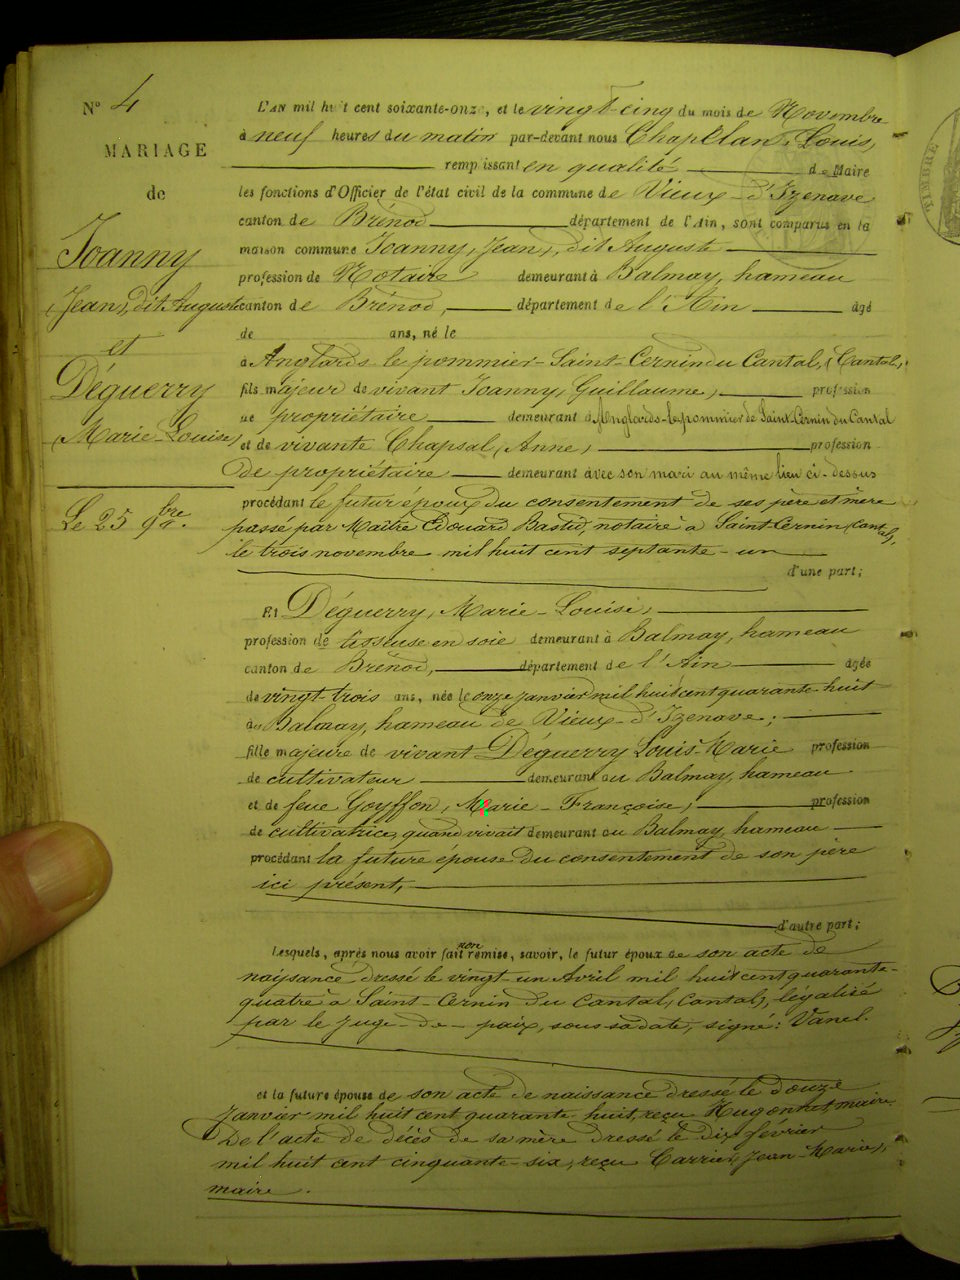 N° 4
MARIAGE
de
Joanny
(Jean), dit Auguste
et
Déguerry
(Marie-Louise)
Le 25 9bre.
L'AN mil huit cent soixante-onze, et le vingt-cinq du mois de Novembre
à neuf heures du matin par-devant nous Chapelan, Louis,
remplissant en qualité de Maire
les fonctions d'Officier de l'état civil de la commune de Vieux-d'Izenave
canton de Brénod département de l'Ain, sont comparus en la
maison commune Joanny, Jean, dit Auguste
profession de Notaire demeurant à Balmay, hameau
canton de Brénod, département de l'Ain âgé
de ans, né le
à Anglards-le-pommier-Saint-Cernin du Cantal, (Cantal),
fils majeur de vivant Joanny, Guillaume, profession
de propriétaire demeurant à Anglards-le-pommier de Saint-Cernin du Cantal
et de vivante Chapsal, (Anne), profession
de propriétaire demeurant avec son mari au même lieu ci-dessus
procédant le futur époux du consentement de ses père et mère
passé par Maître Edouard Bastid, notaire à Saint-Cernin (Cantal),
le trois novembre mil huit cent septante-un
d'une part;
Et Déguerry, Marie-Louise,
profession de tisseuse en soie demeurant à Balmay, hameau
canton de Brénod, département de l'Ain âgée
de vingt-trois ans, née le onze janvier mil huit cent quarante-huit
au Balmay, hameau de Vieux-d'Izenave;
fille majeure de vivant Déguerry Louis-Marie profession
de cultivateur demeurant au Balmay, hameau
et de feue Goyffon, Marie-Françoise, profession
de cultivatrice, quand vivait demeurant au Balmay, hameau
procédant la future épouse du consentement de son père
ici présent,
d'autre part;
Lesquels, après nous avoir fait non remise, savoir, le futur époux de son acte de
naissance dressé le vingt-un Avril mil huit cent quarante-
quatre à Saint-Cernin du Cantal, (Cantal), légalisé
par le Juge-de-paix, sous sa date, signé: Vanel.
et la future épouse de son acte de naissance dressé le douze
Janvier mil huit cent quarante-huit, reçu Hugonnet, maire.
De l'acte de décès de sa mère dressé le dix février
mil huit cent cinquante-six, reçu Carrier, Jean-Marie,
maire.
TIMBRE